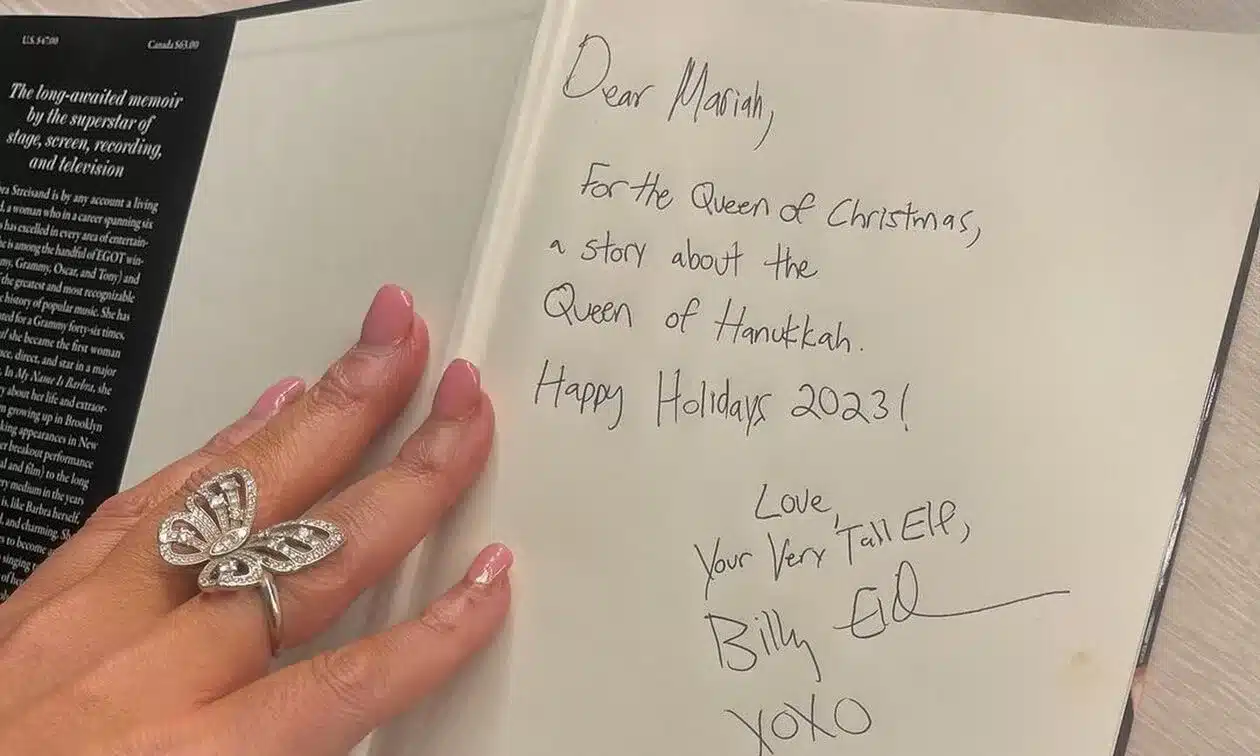 U.S. $47.00
Canada $63.00
The long-awaited memoir
by the superstar of
stage, screen, recording,
and television
Streisand is by any account a living
a woman who in a career spanning six
has excelled in every area of entertain-
is among the handful of EGOT win-
Grammy, Oscar, and Tony) and
the greatest and most recognizable
history of popular music. She has
for a Grammy forty-six times,
she became the first woman
direct, and star in a major
In My Name Is Barbra, she
about her life and extraor-
growing up in Brooklyn
appearances in New
breakout performance
and film) to the long
medium in the years
is, like Barbra herself,
and charming.
to become
singing
Dear Mariah,
For the Queen of Christmas,
a story about the
Queen of Hanukkah.
Happy Holidays 2023!
Love,
Your Very Tall Elf,
Billy
XOXO